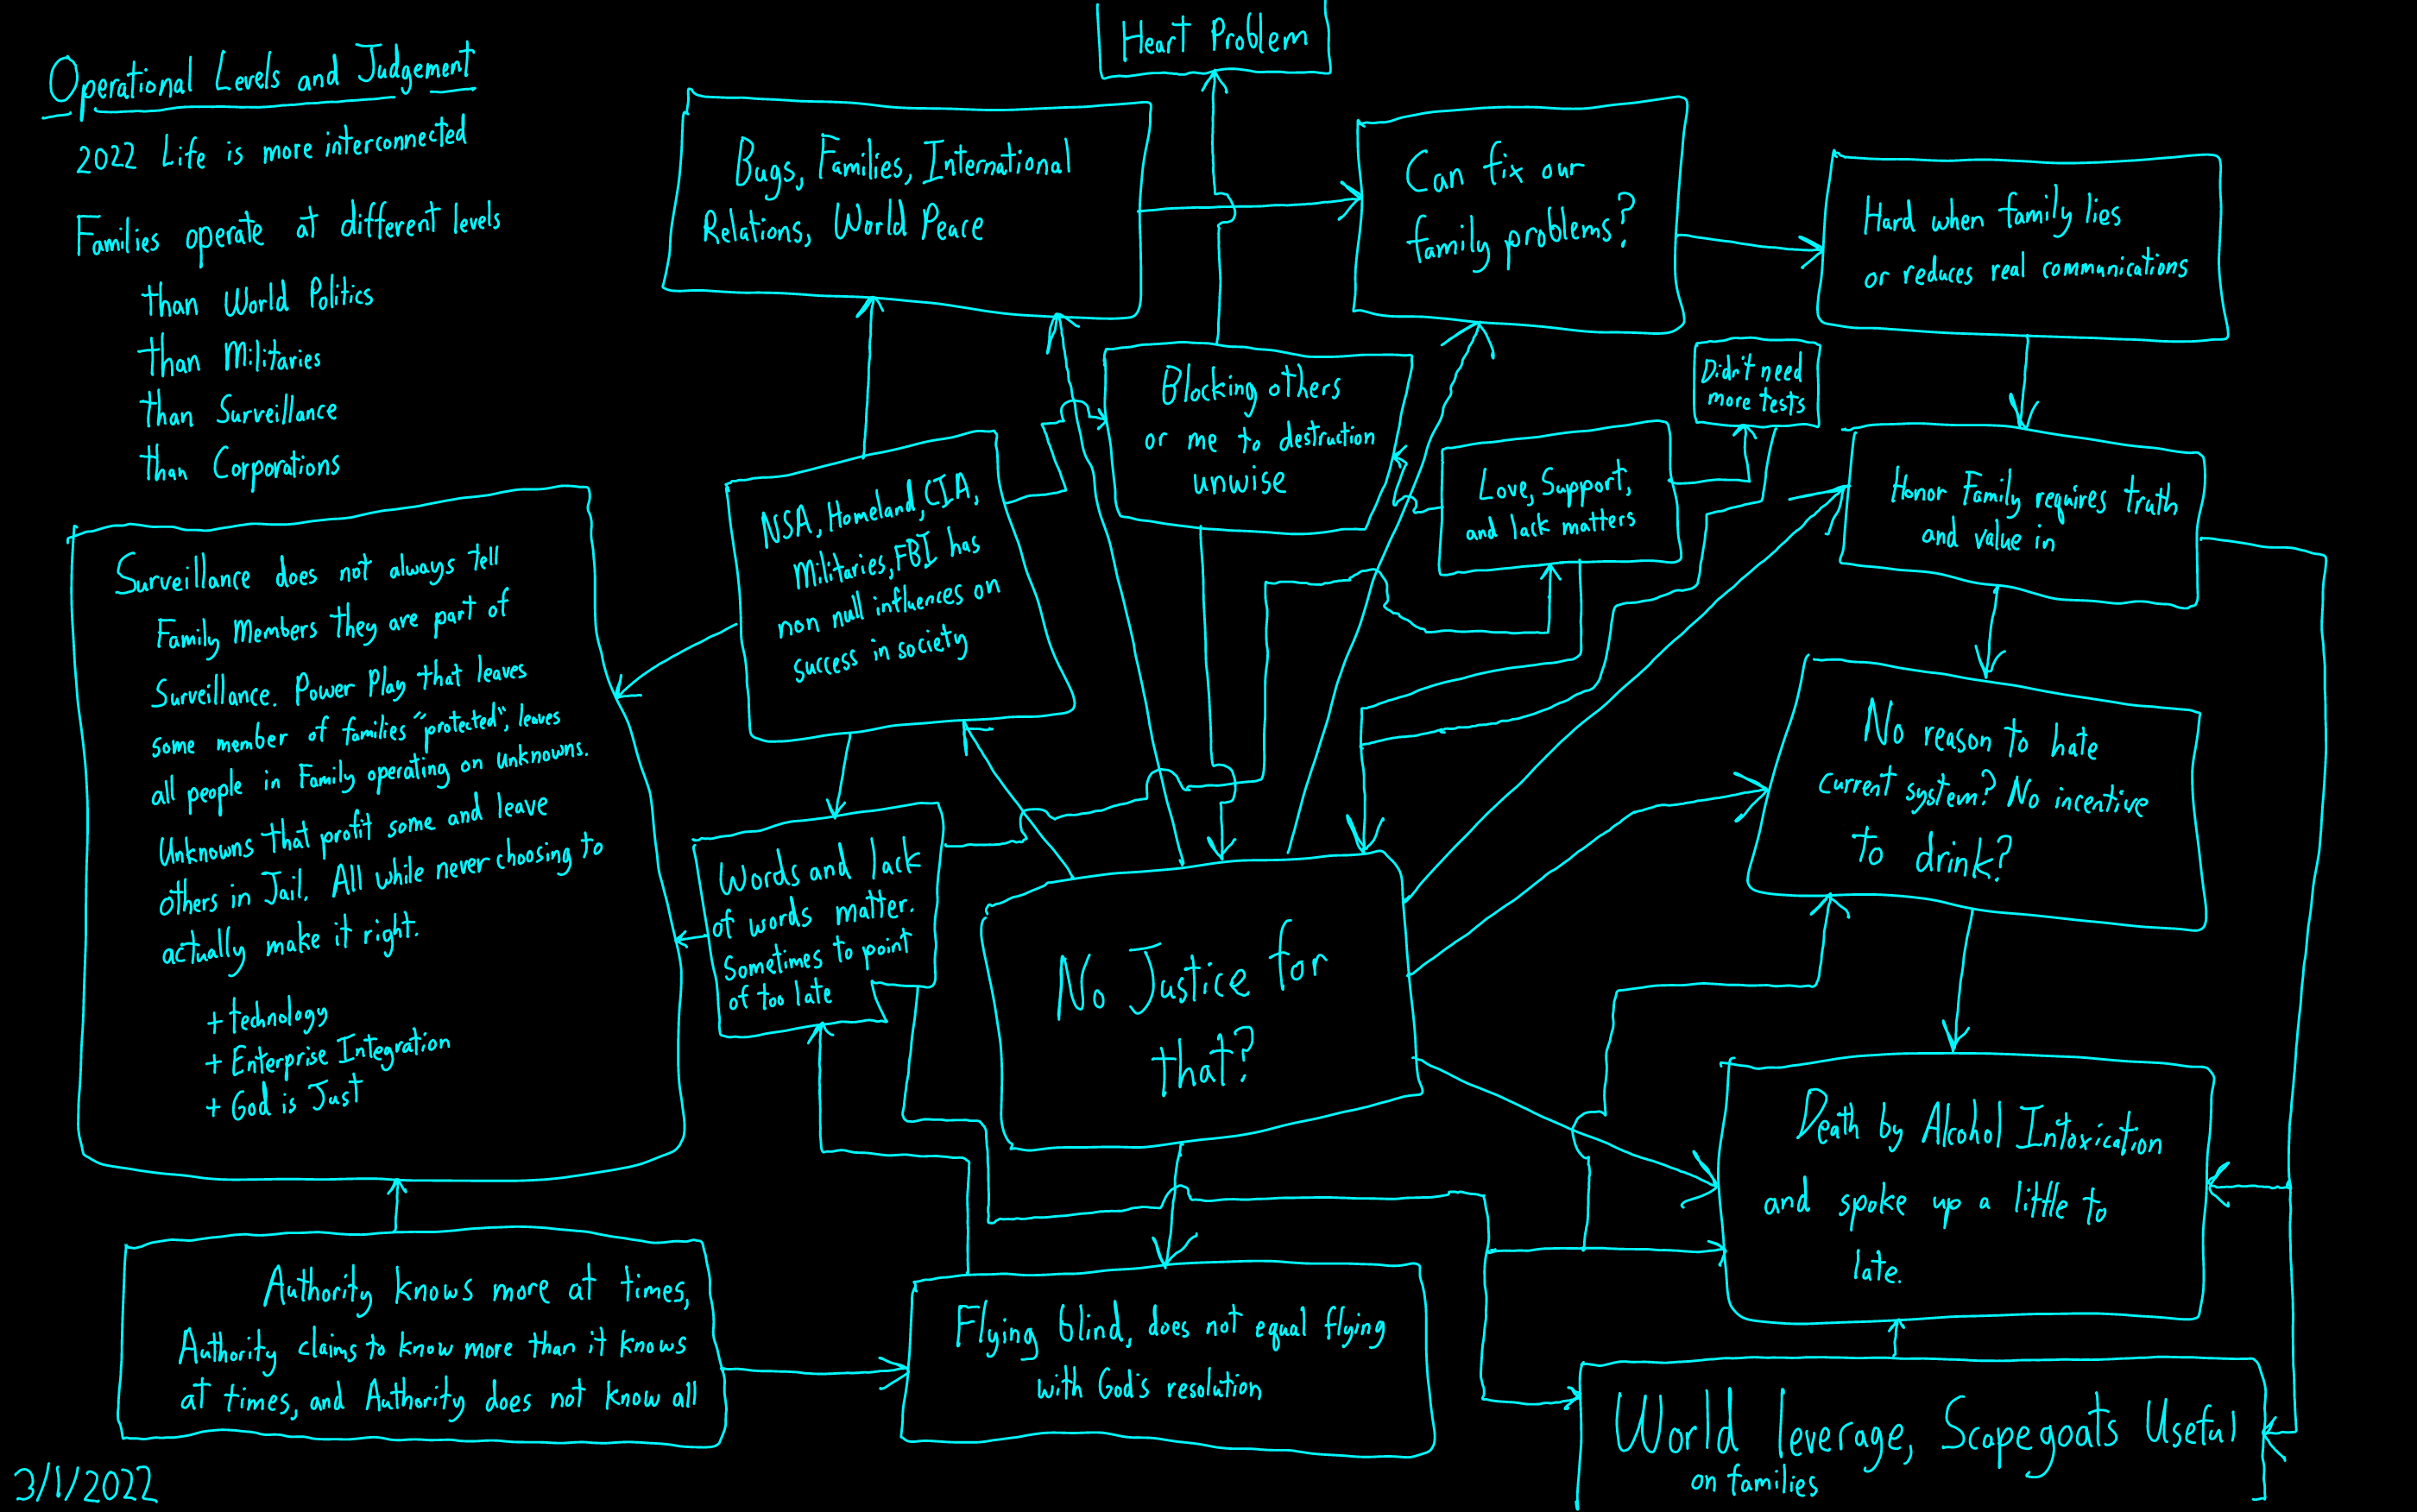 Operational Levels and Judgement
2022 Life is more interconnected
Families operate at different levels
than World Politics
than Militaries
than Surveillance
than Corporations
Heart Problem
Bugs, Families, International
Relations, World Peace
Can fix our
family problems?
Hard when family lies
or reduces real communications
Blocking others
or me to destruction
unwise
Didn't need
more tests
Love, Support,
and lack matters
Honor Family requires truth
and value in
NSA, Homeland, CIA,
Militaries, FBI has
non null influences on
success in society
Surveillance does not always tell
Family Members they are part of
Surveillance. Power Play that leaves
some member of families "protected", leaves
all people in Family operating on unknowns.
Unknowns that profit some and leave
others in Jail. All while never choosing to
actually make it right.
+ technology
+ Enterprise Integration
+ God is Just
No reason to hate
current system? No incentive
to drink?
Words and lack
of words matter.
Sometimes to point
of too late
No Justice for
that?
Death by Alcohol Intoxication
and spoke up a little to
late.
Authority knows more at times,
Authority claims to know more than it knows
at times, and Authority does not know all
Flying blind, does not equal flying
with God's resolution
World leverage, Scapegoats Useful
on families
3/1/2022